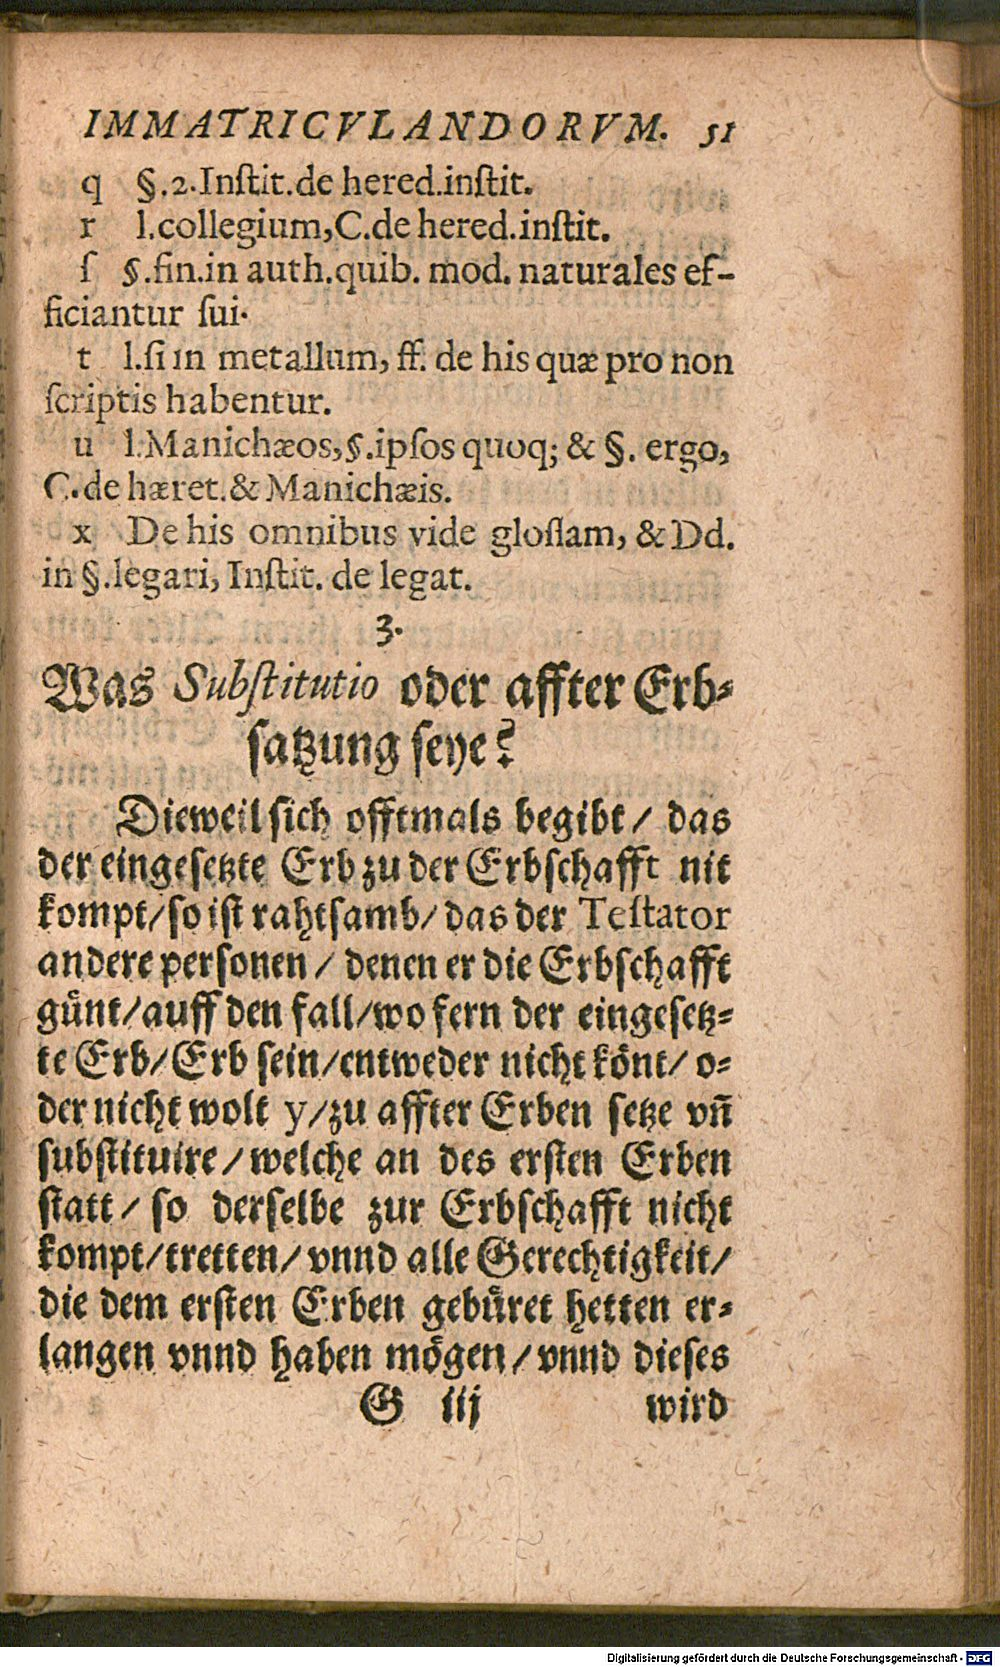 IMMATRICVLANDORVM. 51
q §.2.Inſtit.de hered.inſtit.
r l.collegium,C.de hered.inſtit.
ſ §.fin.in auth.quib. mod. naturales ef-
ficiantur ſui.
t l.ſi in metallum, ff. de his quæ pro non
ſcriptis habentur.
u l.Manichæos,§.ipſos quoq; & §. ergo,
C.de hæret.& Manichæis.
x De his omnibus vide gloſſam, & Dd.
in §.legari, Inſtit. de legat.
3.
Was Subſtitutio oder affter Erb⸗
ſatzung ſeye?
Dieweil ſich offtmals begibt/ das
der eingeſetzte Erb zu der Erbſchafft nit
kompt/ſo iſt rahtſamb/das der Teſtator
andere perſonen/ denen er die Erbſchafft
günt/auff den fall/wo fern der eingeſetz⸗
te Erb/Erb ſein/entweder nicht könt/ o⸗
der nicht wolt y/zu affter Erben ſetze vn̄
ſubſtituire/welche an des erſten Erben
ſtatt/ ſo derſelbe zur Erbſchafft nicht
kompt/tretten/vnnd alle Gerechtigkeit/
die dem erſten Erben gebüret hetten er⸗
langen vnnd haben mögen/vnnd dieſes
G iij wird
Digitalisierung gefördert durch die Deutsche Forschungsgemeinschaft - DFG